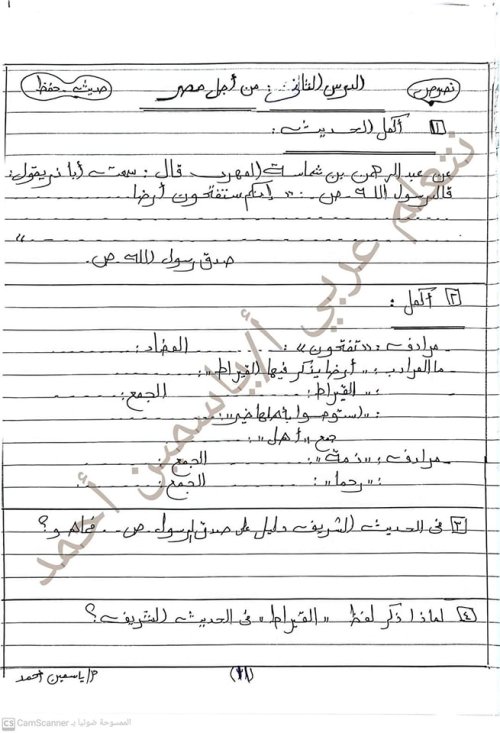 نصوص
الدرس الثانى : من أجل مصر
حديث حفظ
١ أكمل الحديث :
عن عبد الرحمن بن شماسة المهرى قال : سمعت أبا ذر يقول:
قال رسول الله ص .. " إنكم ستفتحون أرضا
"
صدق رسول الله ص.
٢ أكمل :
مرادف : "تفتحون" : ........ المضاد :
ما المراد بـ : "أرضا يذكر فيها القيراط" :
: "القيراط : ........ الجمع :
: "استوصوا بأهلها خير" :
جمع "أهل" :
مرادف : "ذمة" : ........ الجمع :
: "رحما" : ........ الجمع :
٣ فى الحديث الشريف دليل على صدق الرسول ص .. فما هو ؟
٤ لماذا ذكر لفظ "القيراط" فى الحديث الشريف ؟
(١٨)
م/ ياسمين أحمد
نتعلم عربي أ/ ياسمين أحمد
CS CamScanner الممسوحة ضوئيا بـ